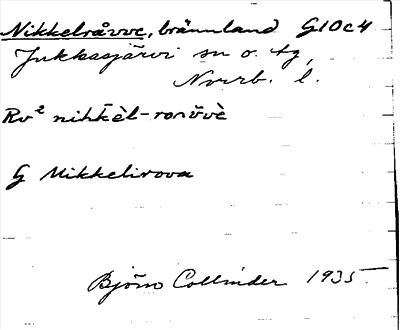 Nikkelråvve, brännland G10c4
Jukkasjärvi sn o. tg,
Norrb. l.
Rv² nihkèl-roavvè
G Mikkelirova
Björn Collinder 1935